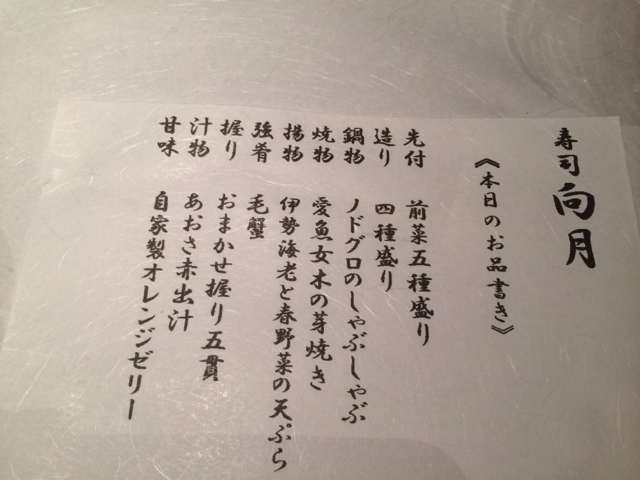 寿司 向月
《本日のお品書き》
先付 前菜五種盛り
造り 四種盛り
鍋物 ノドグロのしゃぶしゃぶ
焼物 愛魚女木の芽焼き
揚物 伊勢海老と春野菜の天ぷら
強肴 毛蟹
握り おまかせ握り五貫
汁物 あおさ赤出汁
甘味 自家製オレンジゼリー